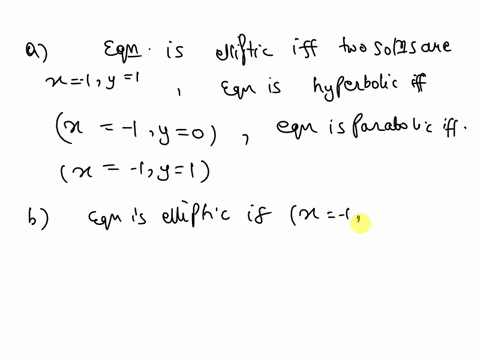 a) Eqn. is elliptic iff two solns are
x=-1, y=1, Eqn is hyperbolic iff
(x = -1, y=0), eqn is parabolic iff.
(x = -1, y=1)
b) Eqn is elliptic is (x = -1,